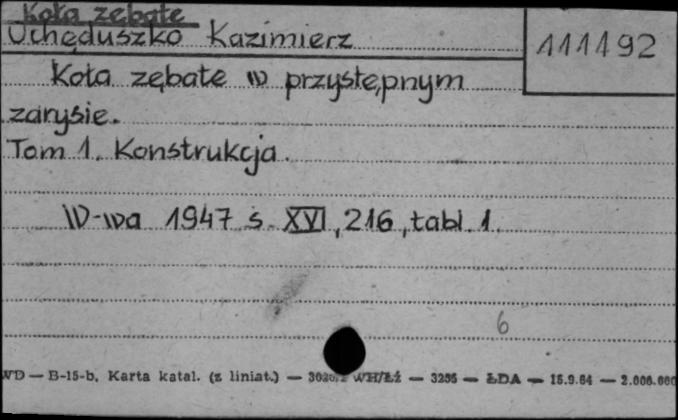 Koła zębate
Ochęduszko Kazimierz
111192
Koła zębate w przystępnym
zarysie.
Tom 1. Konstrukcja.
W-wa 1947 s. XVI, 216, tabl. 1.
6
WD — B-15-b. Karta katal. (z liniat.) — WH/Łż — 3255 — ŁDA — 15.9.64 — 2.000.000